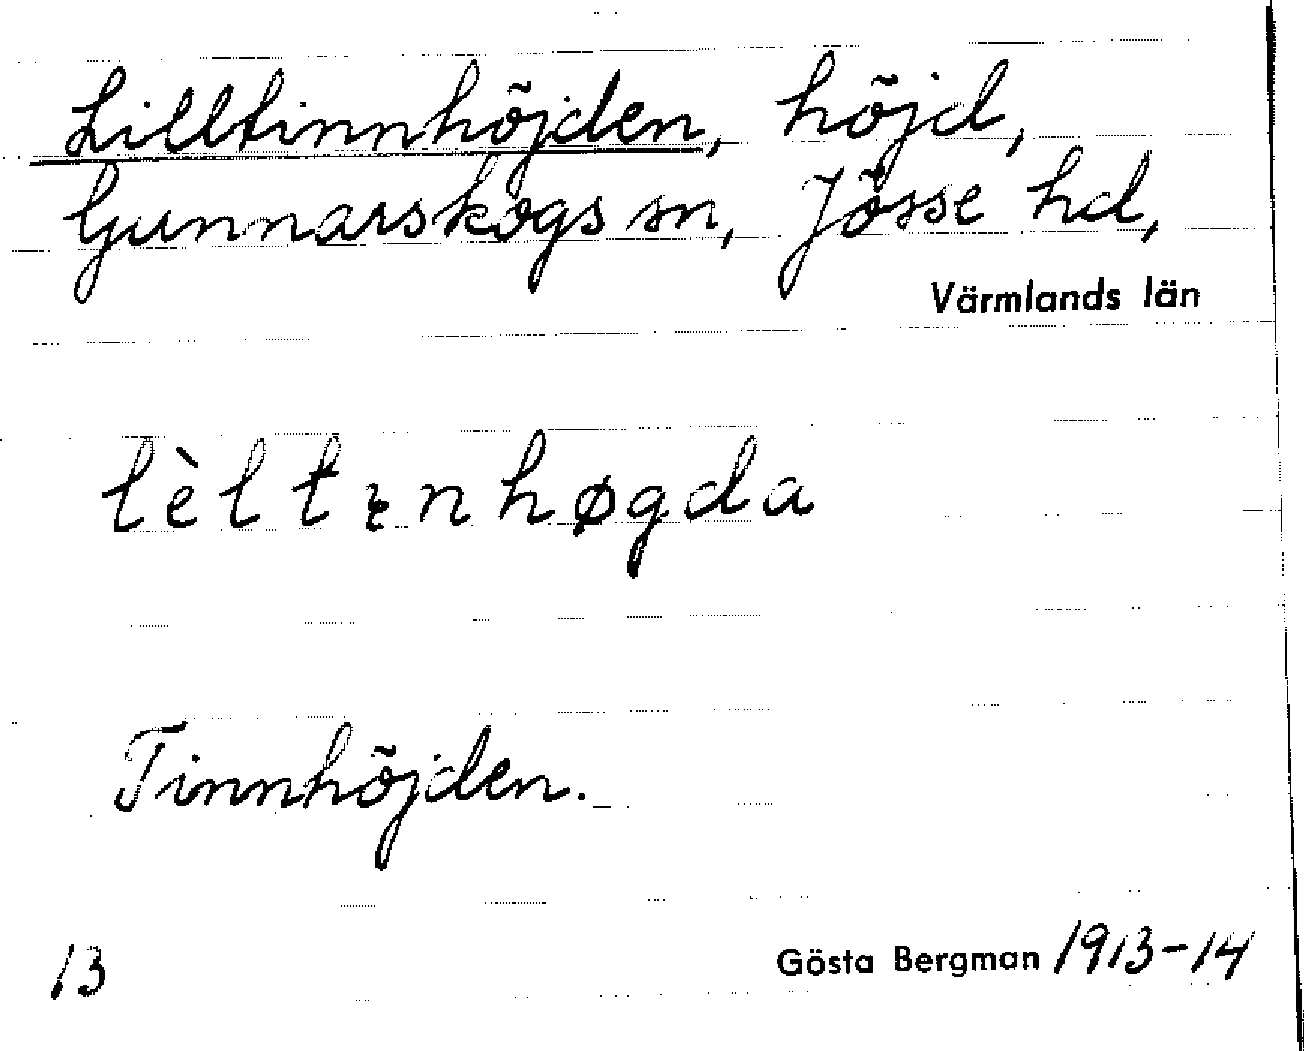 Lilltinnhöjden, höjd,
Gunnarskogs sn, Jösse hd,
Värmlands län
lèltɿnhøgda
Tinnhöjden.
13
Gösta Bergman 1913-14